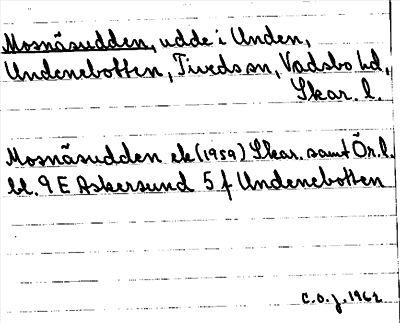 Mosnäsudden, udde i Unden,
Undenebotten, Tiveds sn, Vadsbo hd,
Skar. l.
Mosnäsudden ek (1959) Skar. samt Ör. l.
bl. 9 E Askersund 5 f Undenebotten
C.O.J. 1962